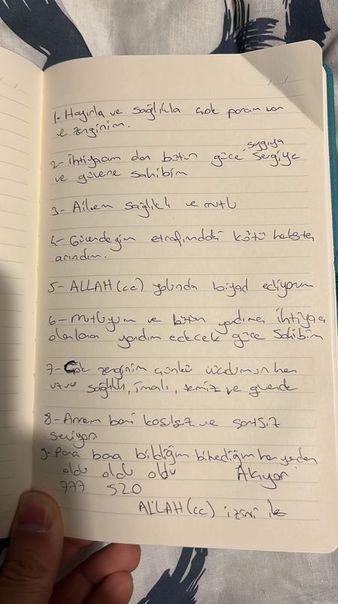 1- Hayırla ve sağlıkla çok param var
ve zenginim.
2- İhtiyacım olan bütün güce saygıya sevgiye
ve güvene sahibim
3- Ailem sağlıklı ve mutlu
4- Güvendeyim etrafımdaki kötü herkesten
arındım.
5- ALLAH (cc) yolunda ediyorum
6- Mutluyum ve bütün yardıma ihtiyacı
olanlara yardım edecek güce sahibim
7- Çok zenginim çünkü vücudumun her
uzvu sağlıklı, imanlı, temiz ve güvende
8- Annem beni koşulsuz ve şartsız
seviyor
9- Para bana bildiğim bilmediğim her yerden
oldu oldu oldu Akıyor
777 520
ALLAH (cc) izni ile